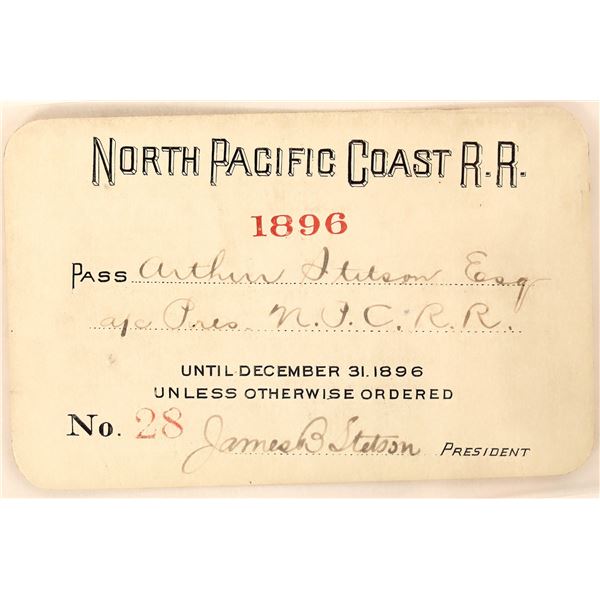 NORTH PACIFIC COAST R.R.
1896
PASS Arthur Stetson Esq
a/c Pres. N. P. C. R. R.
UNTIL DECEMBER 31. 1896
UNLESS OTHERWISE ORDERED
No. 28 James B Stetson PRESIDENT